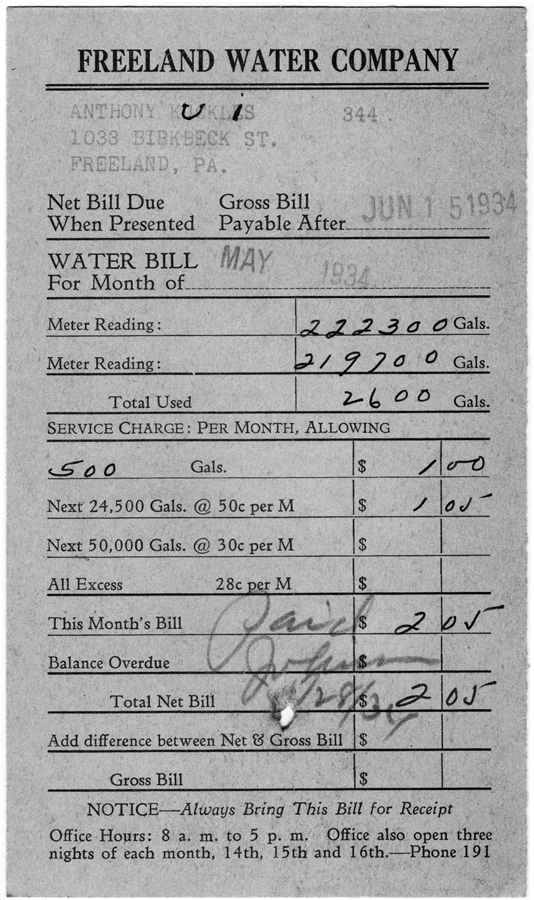 FREELAND WATER COMPANY
ANTHONY KUCKLES 344.
U i
1033 BIRKBECK ST.
FREELAND, PA.
Net Bill Due Gross Bill
When Presented Payable After JUN 15 1934
WATER BILL MAY
For Month of 1934
Meter Reading: 222300 Gals.
Meter Reading: 219700 Gals.
Total Used 2600 Gals.
SERVICE CHARGE: PER MONTH, ALLOWING
500 Gals. $ 1 00
Next 24,500 Gals. @ 50c per M $ 1 05
Next 50,000 Gals. @ 30c per M $
All Excess 28c per M $
This Month's Bill Paid $ 2 05
Balance Overdue $
Total Net Bill /28/34 $ 2 05
Add difference between Net & Gross Bill $
Gross Bill $
NOTICE—Always Bring This Bill for Receipt
Office Hours: 8 a. m. to 5 p. m. Office also open three
nights of each month, 14th, 15th and 16th.—Phone 191